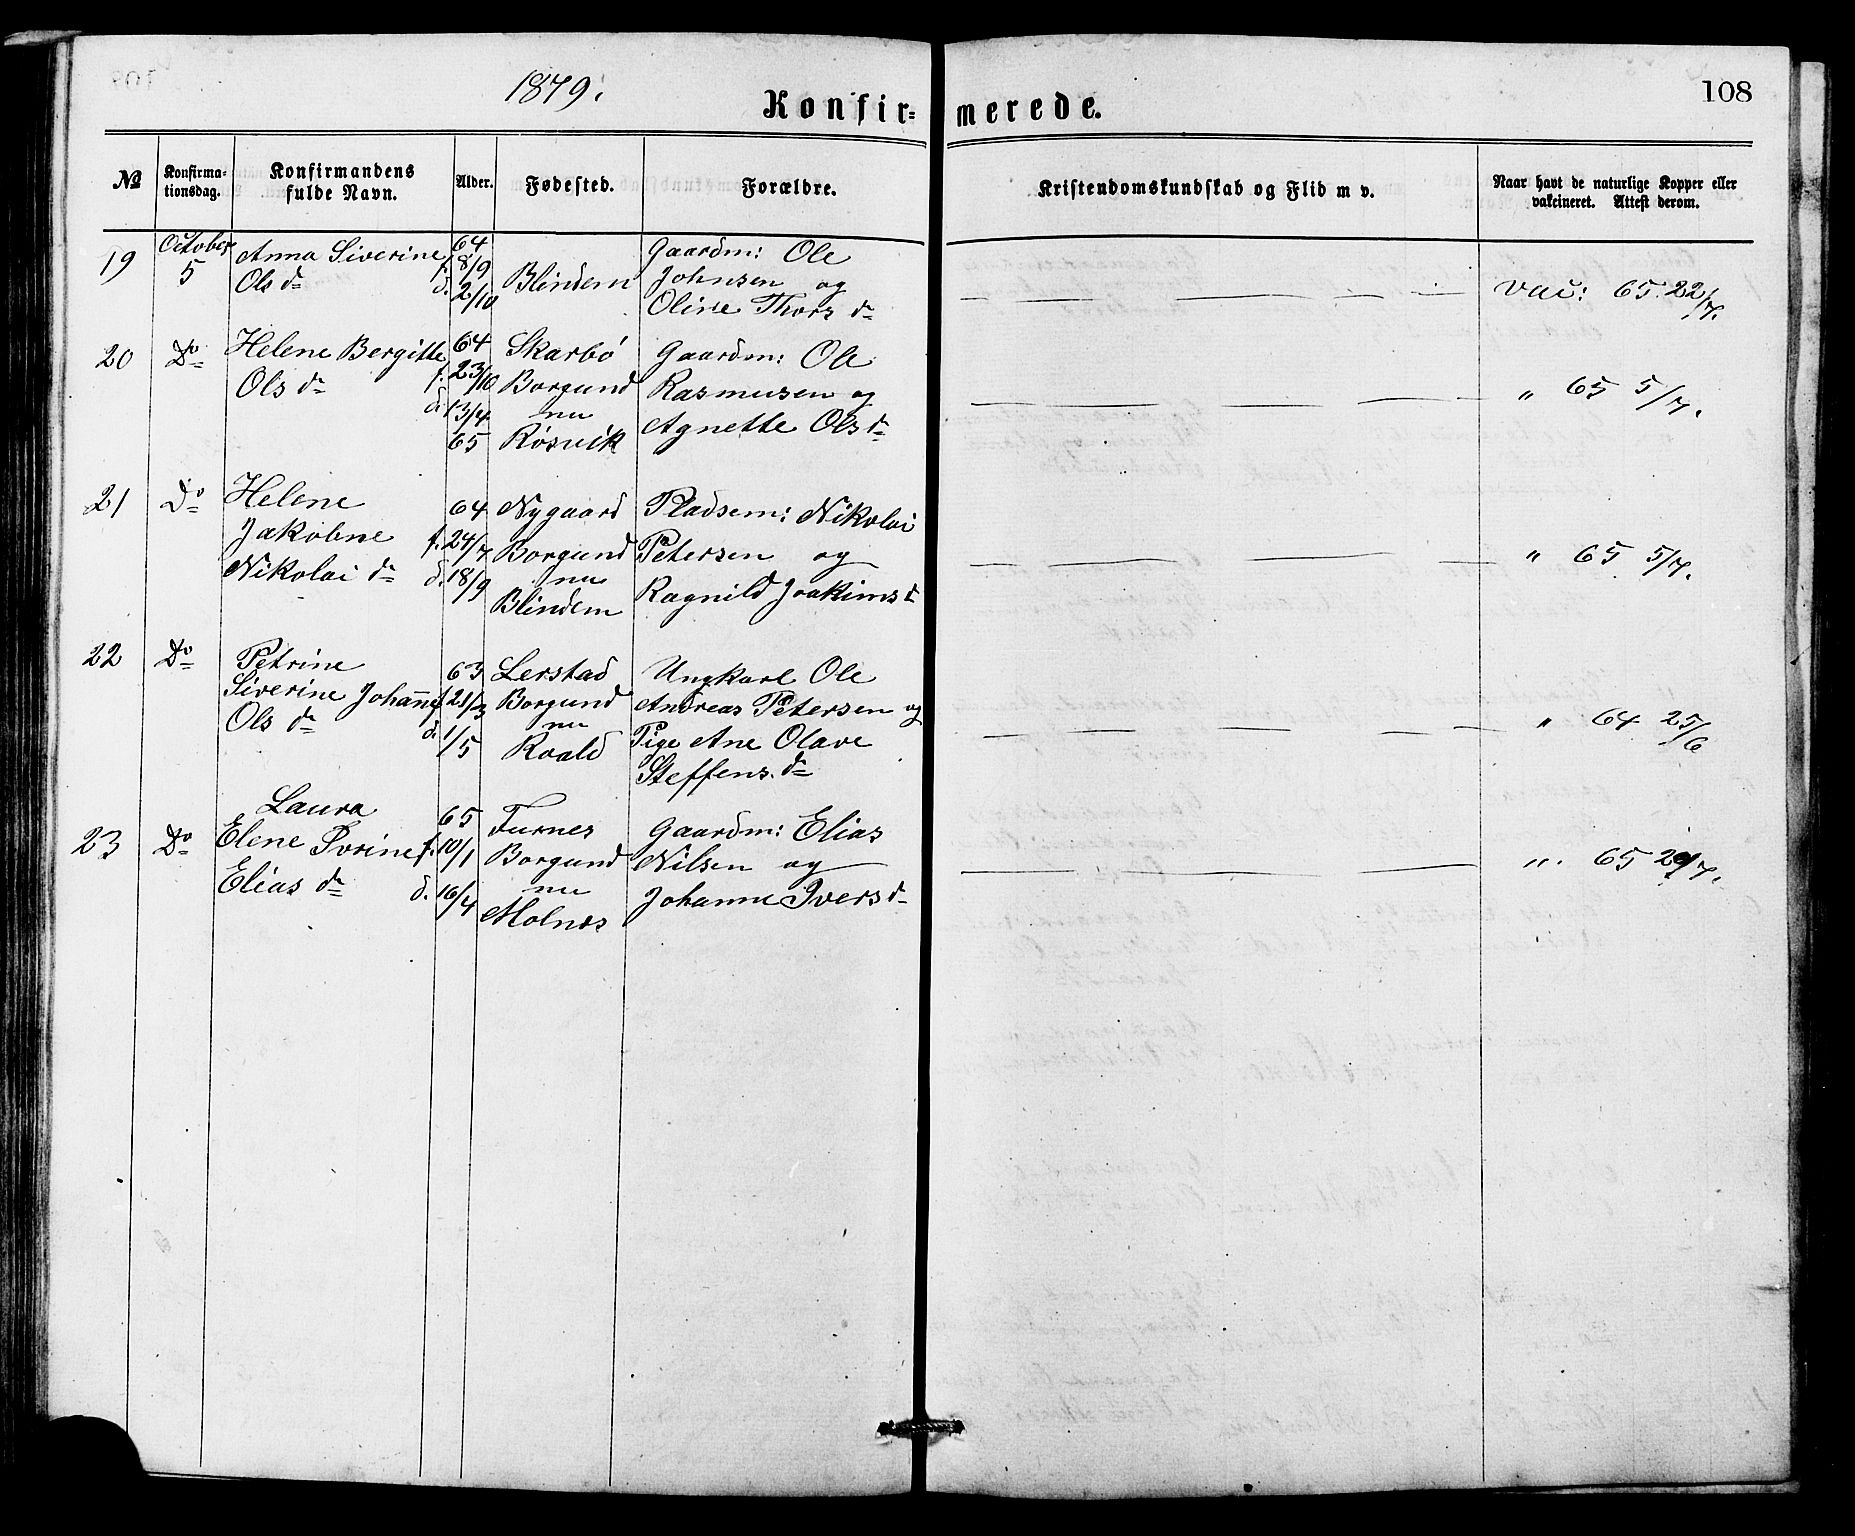 1879.
Konfir- merede.
108
№ Konfirma-tionsdag. Konfirmandens fulde Navn. Alder. Fødested. Forældre. Kristendomskundskab og Flid m v. Naar havt de naturlige Kopper eller vakcineret. Attest derom.
19 October 5
Anna Siverine
Ols dr
64
f. 8/9
d. 2/10
Blindem
Gaardm: Ole
Johnsen og
Oline Thors dr
Vac: 65. 22/7.
20 Do
Helene Bergitte
Ols dr
64
f. 23/10
d. 13/4
65
Skarbó
Borgund
nu
Røsvik
Gaardm: Ole
Rasmusen og
Agnette Ols dr
" 65 5/7.
21 Do
Helene
Jakobne
Nikolai dr
64
f. 24/7
d. 18/9
Nygaard
Borgund
nu
Blindem
Pladsem: Nikolai
Petersen og
Ragnild Joakims d
" 65 5/7.
22 Do
Petrine
Siverine Johanne
Ols dr
63
f. 21/3
d. 1/5
Lerstad
Borgund
nu
Roald
Ungkarl Ole
Andreas Petersen og
Pige Ane Olave
Steffens. dr
" 64 25/6
23 Do
Laura
Elene Ivrine
Elias dr
65
f. 10/1
d. 16/4
Furnes
Borgund
nu
Molnes
Gaardm: Elias
Nilsen og
Johanne Ivers d
". 65 29/7.